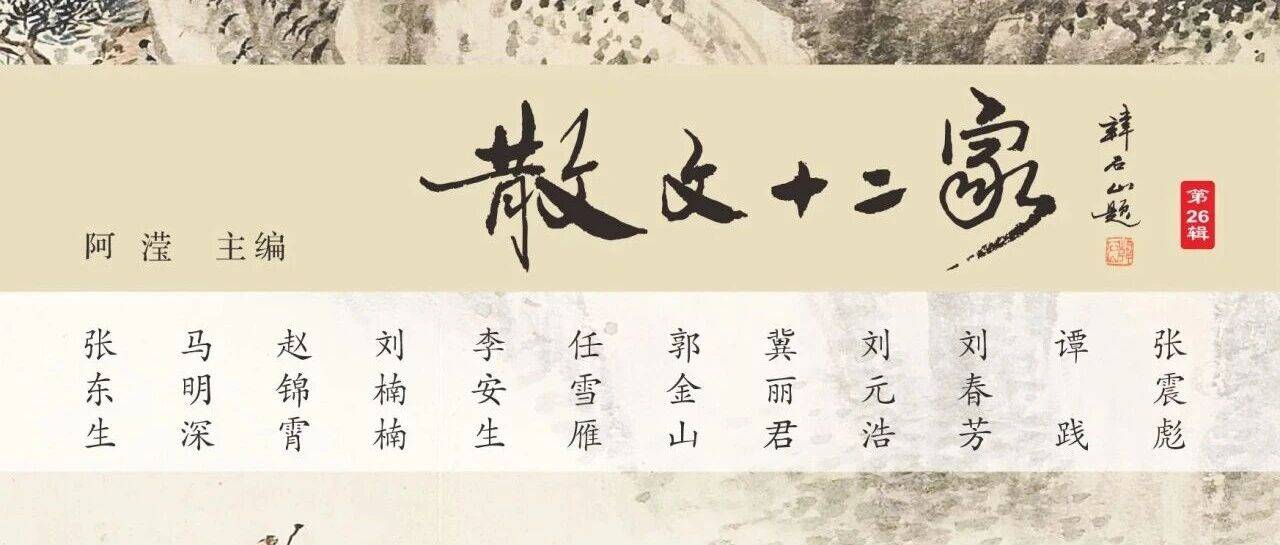 散文十二家
韩石山题
第26辑
阿滢 主编
张东生
马明深
赵锦霄
刘楠楠
李安生
任雪雁
郭金山
冀丽君
刘元浩
刘春芳
谭践
张震彪